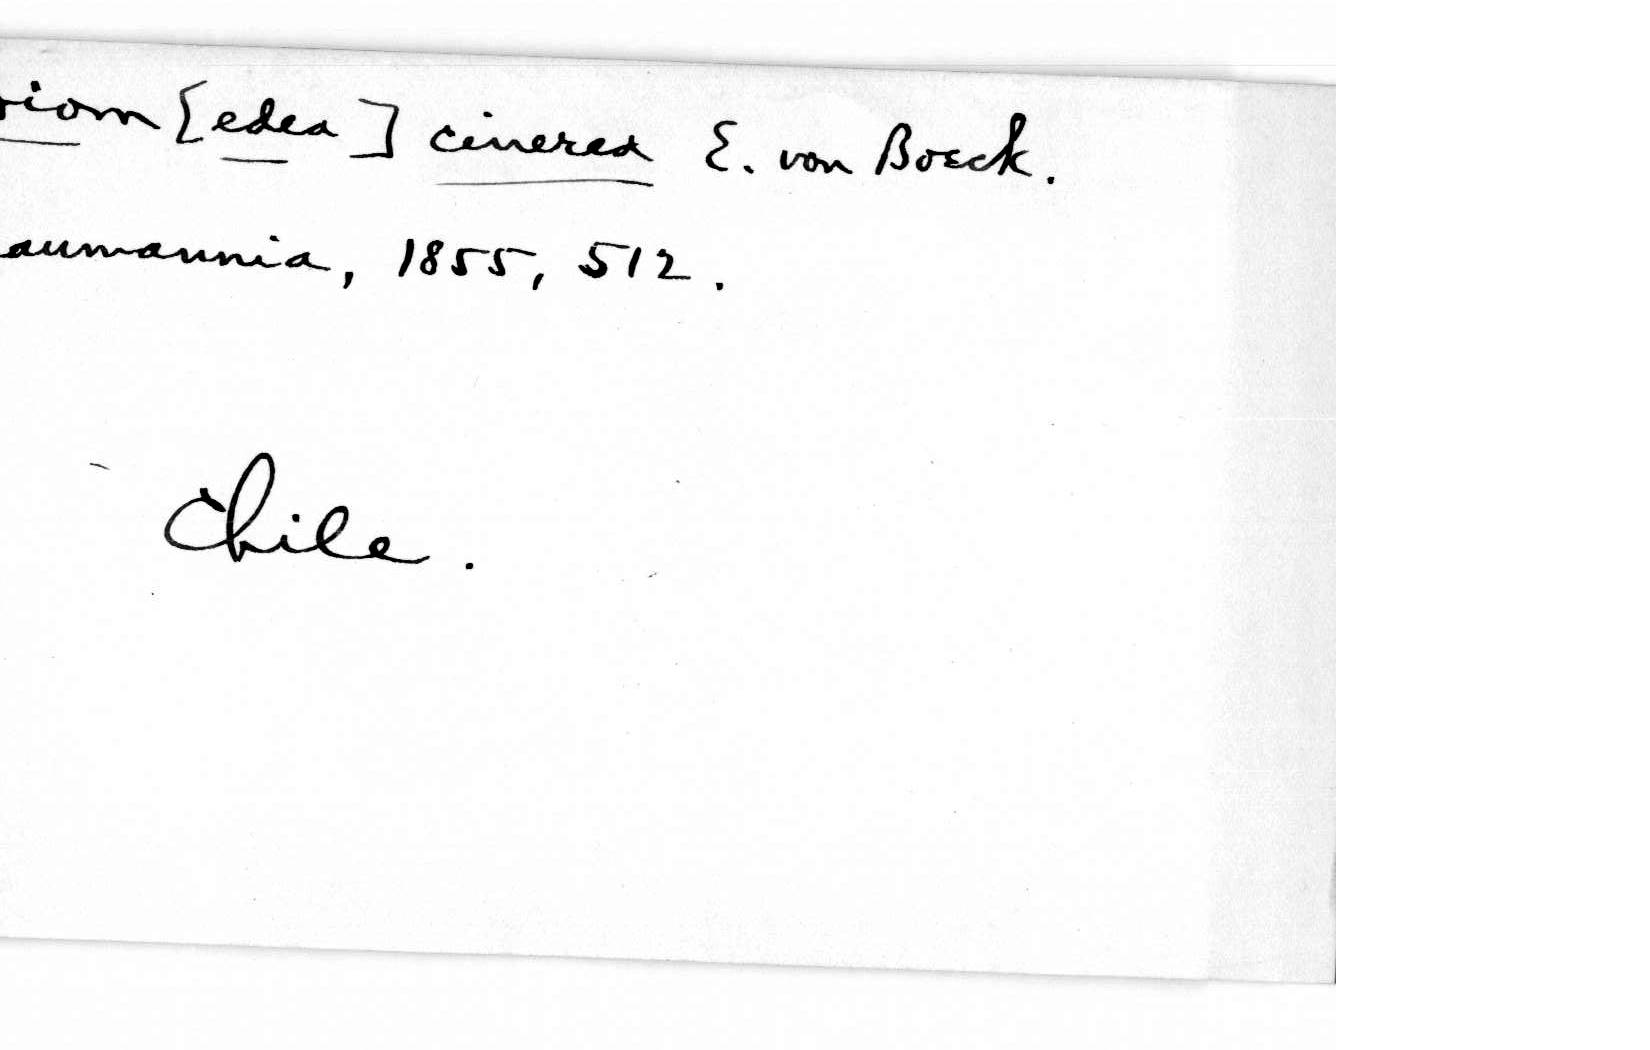 riom [edea] cinerea E. von Boeck.
aumannia, 1855, 512.
Chile.